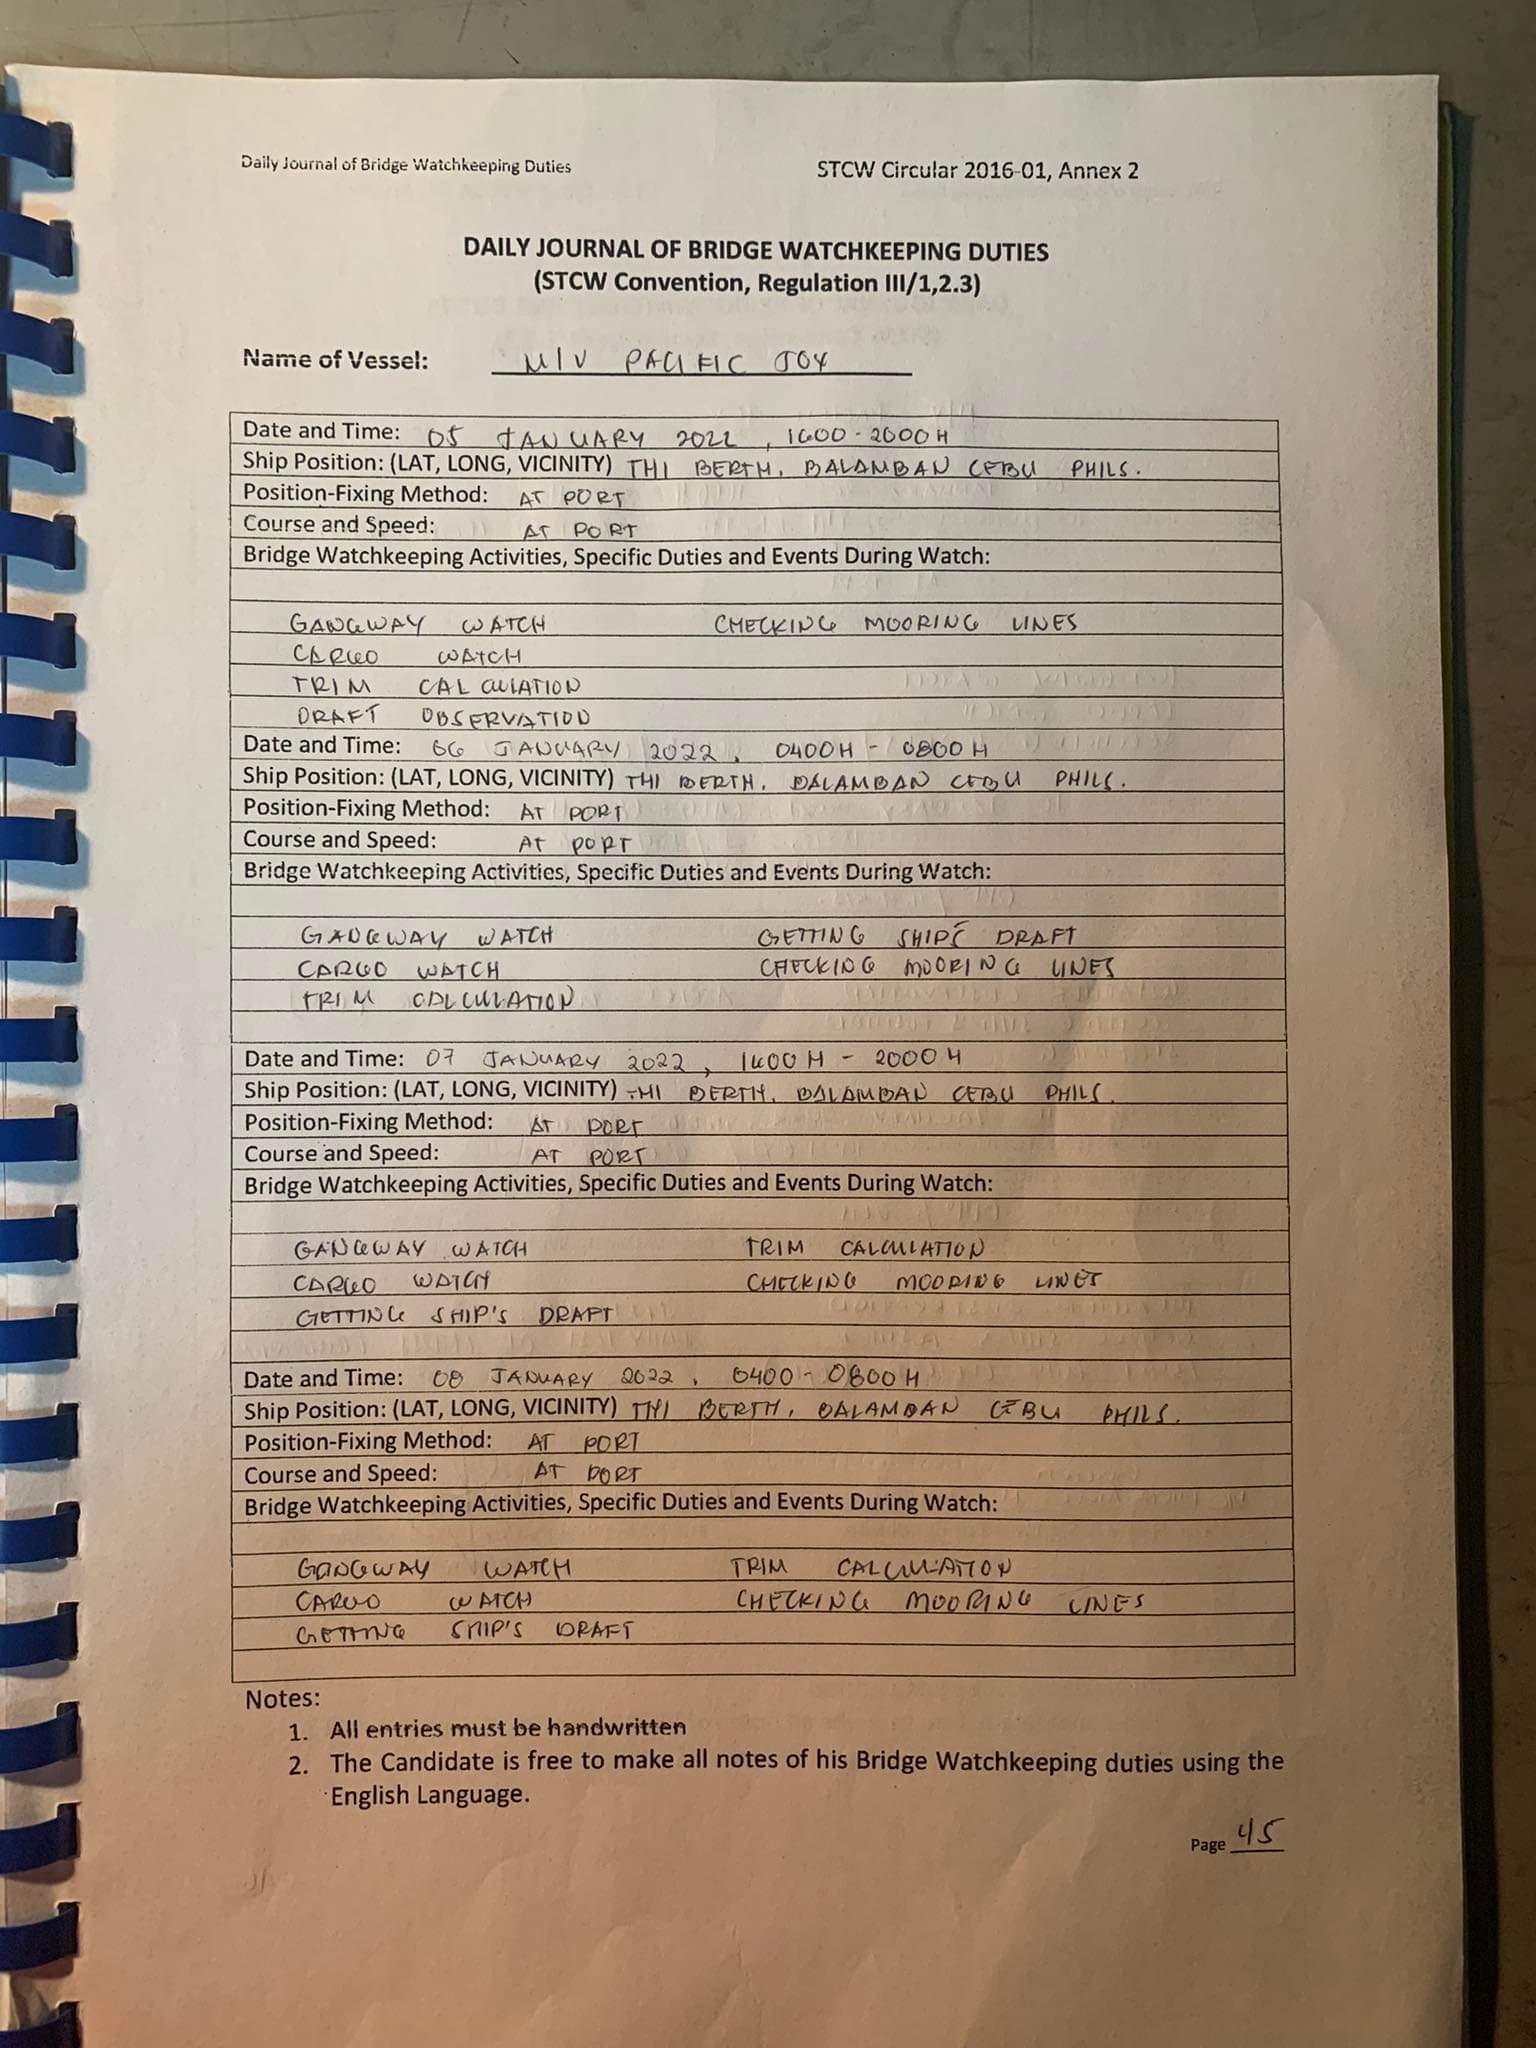 Daily Journal of Bridge Watchkeeping Duties STCW Circular 2016-01, Annex 2
DAILY JOURNAL OF BRIDGE WATCHKEEPING DUTIES
(STCW Convention, Regulation III/1,2.3)
Name of Vessel: M/V PACIFIC JOY
Date and Time: 05 JANUARY 2022, 1600-2000H
Ship Position: (LAT, LONG, VICINITY) THI BERTH, BALAMBAN CEBU PHILS.
Position-Fixing Method: AT PORT
Course and Speed: AT PORT
Bridge Watchkeeping Activities, Specific Duties and Events During Watch:
GANGWAY WATCH CHECKING MOORING LINES
CARGO WATCH
TRIM CALCULATION
DRAFT OBSERVATION
Date and Time: 06 JANUARY 2022, 0400H - 0800H
Ship Position: (LAT, LONG, VICINITY) THI BERTH, BALAMBAN CEBU PHILS.
Position-Fixing Method: AT PORT
Course and Speed: AT PORT
Bridge Watchkeeping Activities, Specific Duties and Events During Watch:
GANGWAY WATCH GETTING SHIP'S DRAFT
CARGO WATCH CHECKING MOORING LINES
TRIM CALCULATION
Date and Time: 07 JANUARY 2022, 1600H - 2000H
Ship Position: (LAT, LONG, VICINITY) THI BERTH, BALAMBAN CEBU PHILS.
Position-Fixing Method: AT PORT
Course and Speed: AT PORT
Bridge Watchkeeping Activities, Specific Duties and Events During Watch:
GANGWAY WATCH TRIM CALCULATION
CARGO WATCH CHECKING MOORING LINES
GETTING SHIP'S DRAFT
Date and Time: 08 JANUARY 2022, 0400-0800H
Ship Position: (LAT, LONG, VICINITY) THI BERTH, BALAMBAN CEBU PHILS.
Position-Fixing Method: AT PORT
Course and Speed: AT PORT
Bridge Watchkeeping Activities, Specific Duties and Events During Watch:
GANGWAY WATCH TRIM CALCULATION
CARGO WATCH CHECKING MOORING LINES
GETTING SHIP'S DRAFT
Notes:
1. All entries must be handwritten
2. The Candidate is free to make all notes of his Bridge Watchkeeping duties using the
English Language.
Page 45